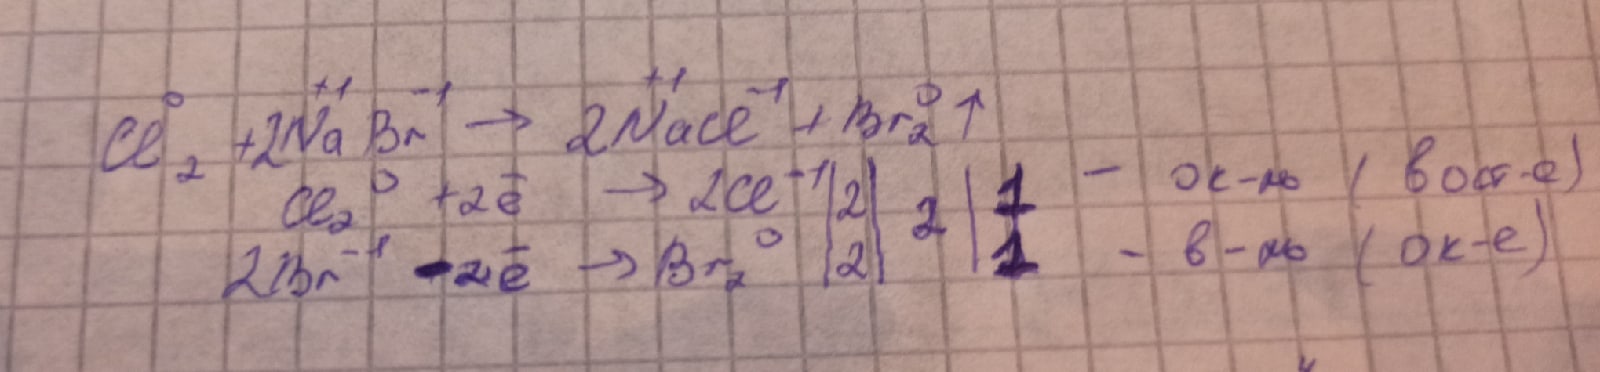 Cl₂⁰ + 2Na⁺¹Br⁻¹ → 2Na⁺¹Cl⁻¹ + Br₂⁰↑
Cl₂⁰ + 2ē → 2Cl⁻¹ |2| 2 | 1 - ок-ль (вост-е)
2Br⁻¹ - 2ē → Br₂⁰ |2| 1 - в-ль (ок-е)